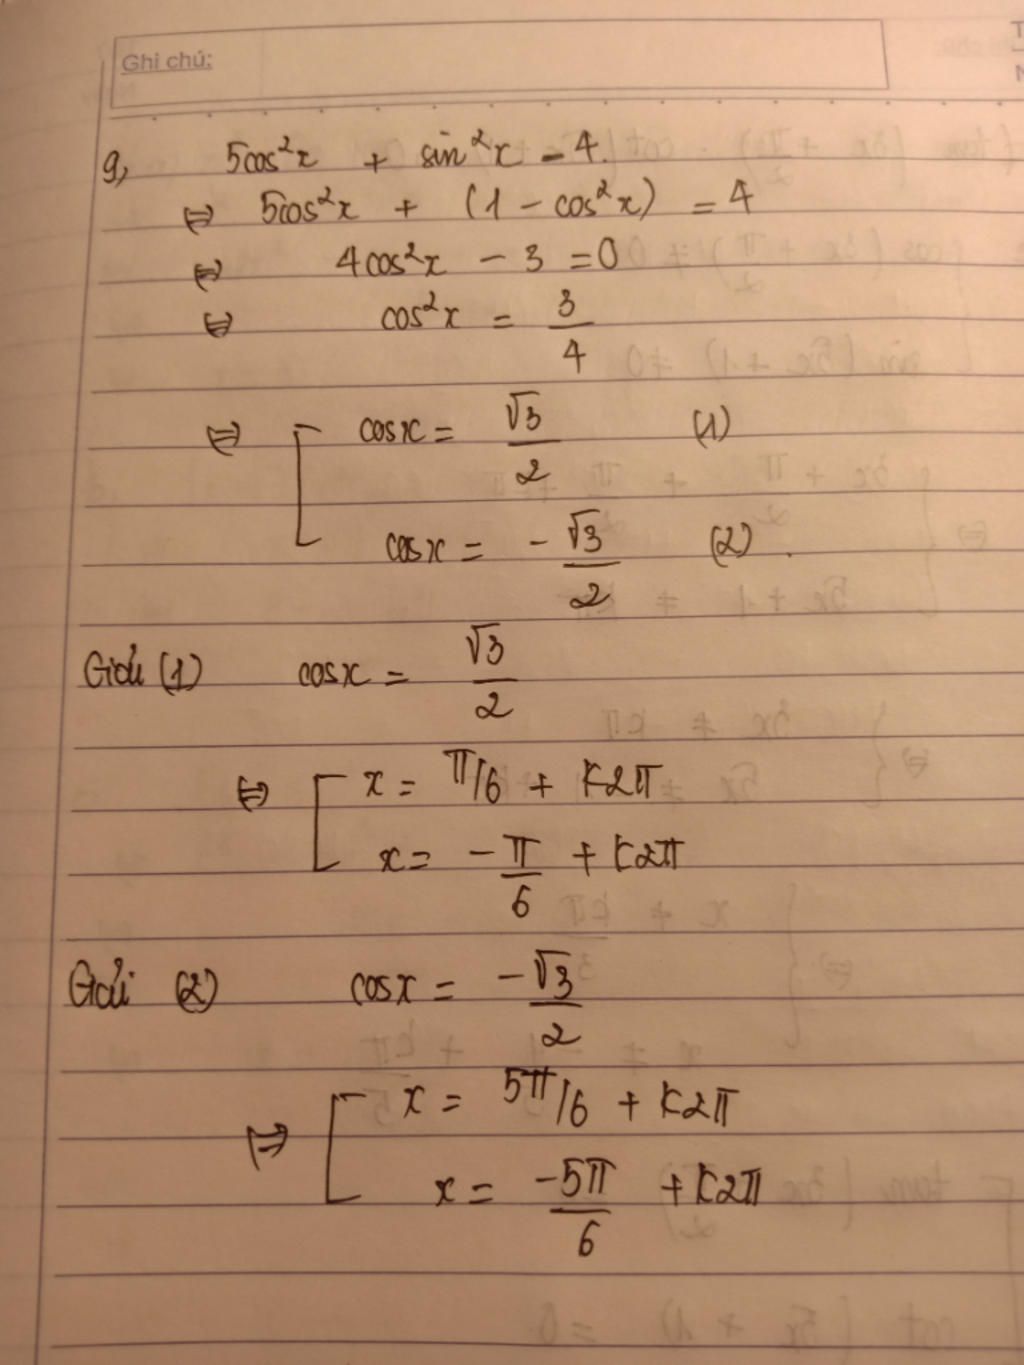 Ghi chú:
g, 5cos²x + sin²x = 4.
⇔ 5cos²x + (1 - cos²x) = 4
⇔ 4cos²x - 3 = 0
⇔ cos²x = 3/4
⇔ [ cosx = √3/2 (1)
cosx = -√3/2 (2).
Giải (1) cosx = √3/2
⇔ [ x = π/6 + k2π
x = -π/6 + k2π
Giải (2) cosx = -√3/2
⇔ [ x = 5π/6 + k2π
x = -5π/6 + k2π